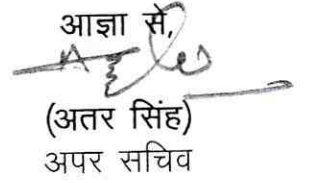 आज्ञा से,
(अतर सिंह)
अपर सचिव